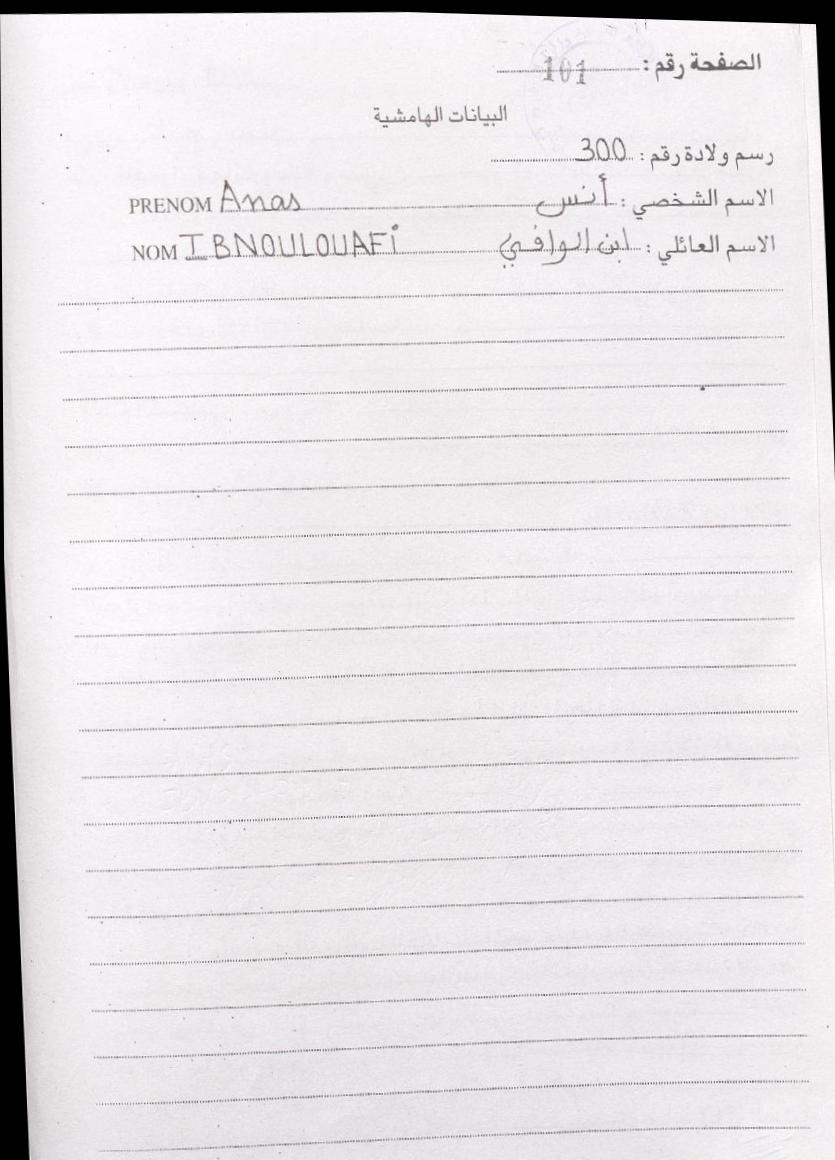 الصفحة رقم : 101
البيانات الهامشية
رسم ولادة رقم : 300
الاسم الشخصي : أنس PRENOM Anas
الاسم العائلي : ابن الوافي NOM IBNOULOUAFi